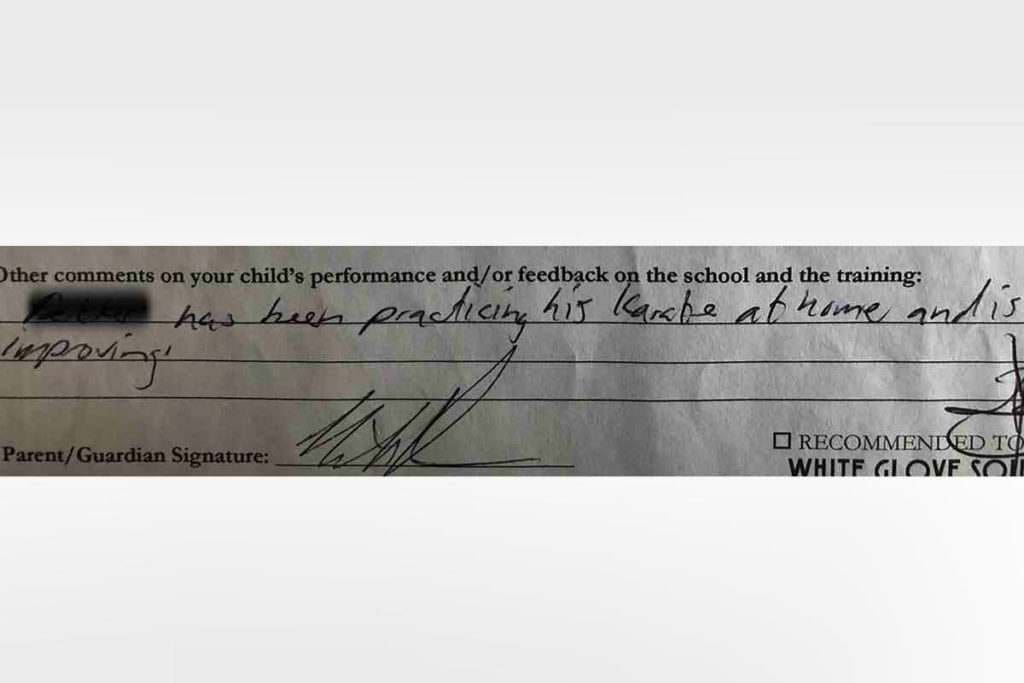 Other comments on your child's performance and/or feedback on the school and the training:
has been practicing his Karate at home and is
improving.
Parent/Guardian Signature:
☐ RECOMMENDED TO
WHITE GLOVE